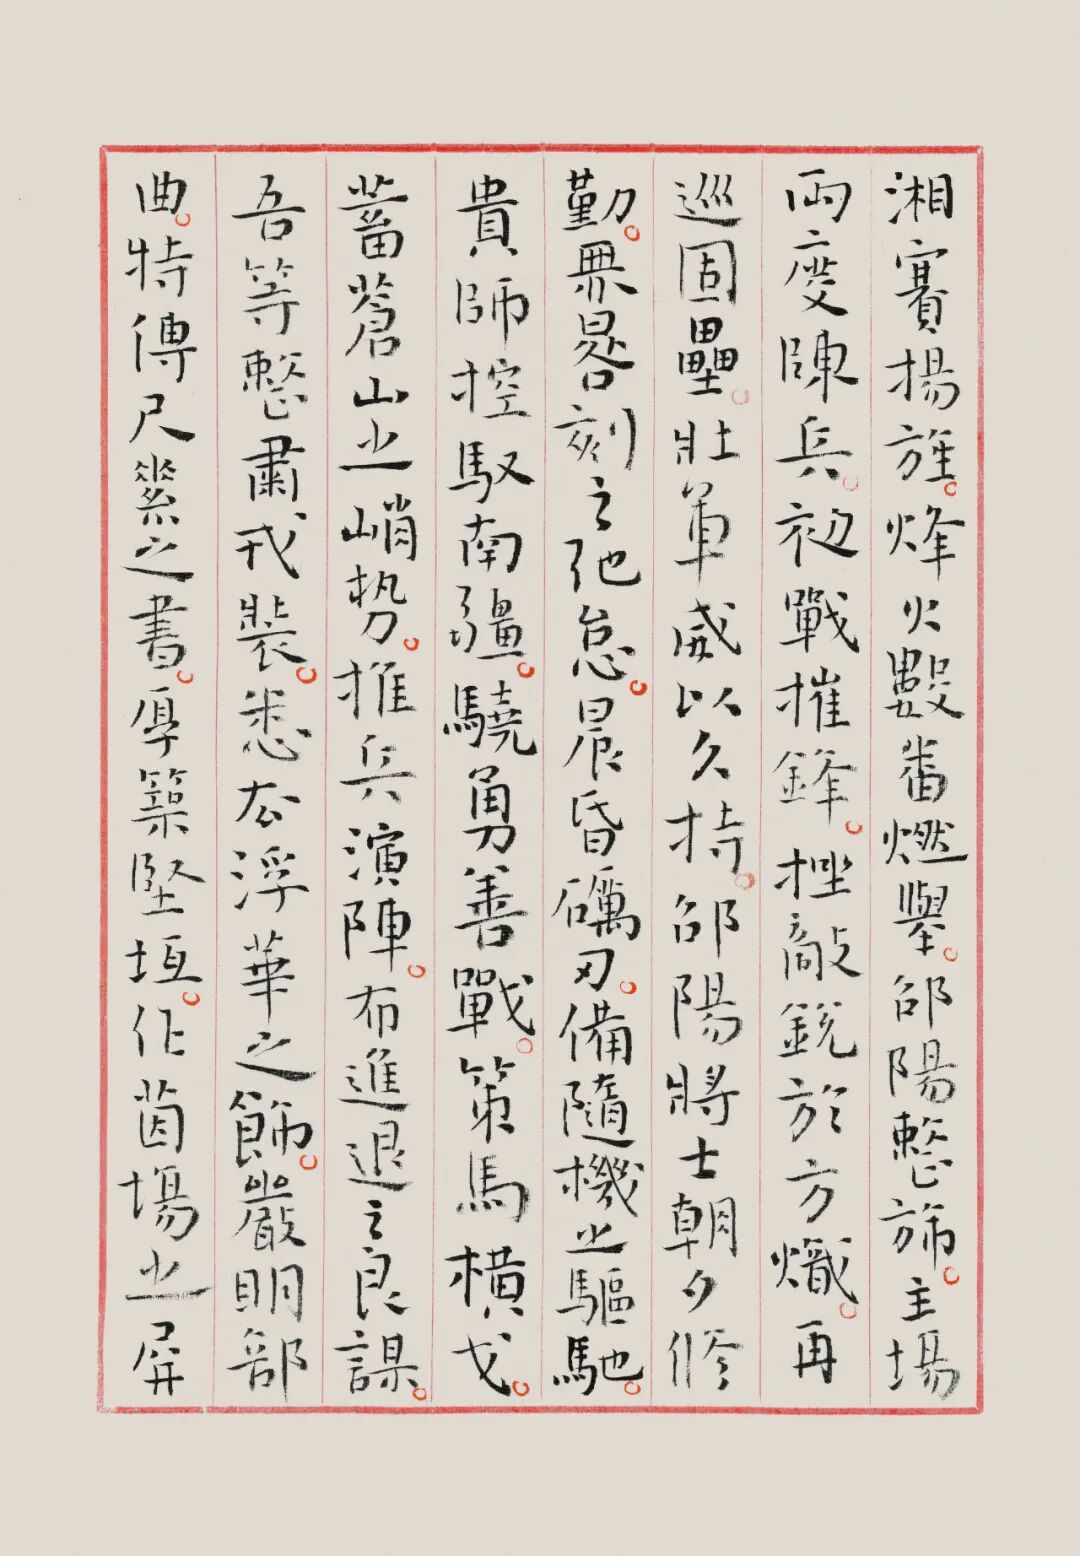 湘賽揚旌。烽火數番燃舉。邵陽整旆。主場
兩度陳兵。初戰摧鋒。挫敵銳於方熾。再
巡固壘。壯軍威以久持。邵陽將士朝夕修
勤。毋畧刻之弛怠。晨昏礪刃。備隨機之驅馳。
貴師控馭南疆。驍勇善戰。策馬橫戈。
蓄蒼山之峭勢。推兵演陣。布進退之良謀。
吾等整肅戎裝。悉去浮華之飾。嚴明部
曲。特傳尺素之書。厚築堅垣。作茵場之屏